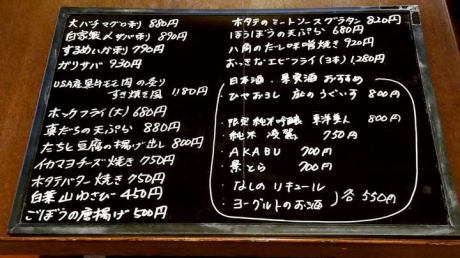 大バチマグロ刺 880円
自家製〆サバ刺 890円
するめいか刺 790円
ガリサバ 930円
USA産黒牛モモ肉の炙り
すき焼き風 1180円
ホッケフライ(大) 680円
真だちの天ぷら 880円
たちと豆腐の揚げ出し 800円
イカマヨチーズ焼き 750円
ホタテバター焼き 750円
白葉山わさび 450円
ごぼうの唐揚げ 500円
ホタテのミートソースグラタン 820円
ほうぼうの天ぷら 680円
八角のだし味噌焼き 920円
おっきなエビフライ(3本) 1,280円
日本酒・果実酒 おすすめ
ひやおろし 庭のうぐいす 800円
・限定純米吟醸 東洋美人 800円
・純米 凌駕 750円
・AKABU 700円
・景とら 700円
・なしのリキュール
・ヨーグルトのお酒 各550円